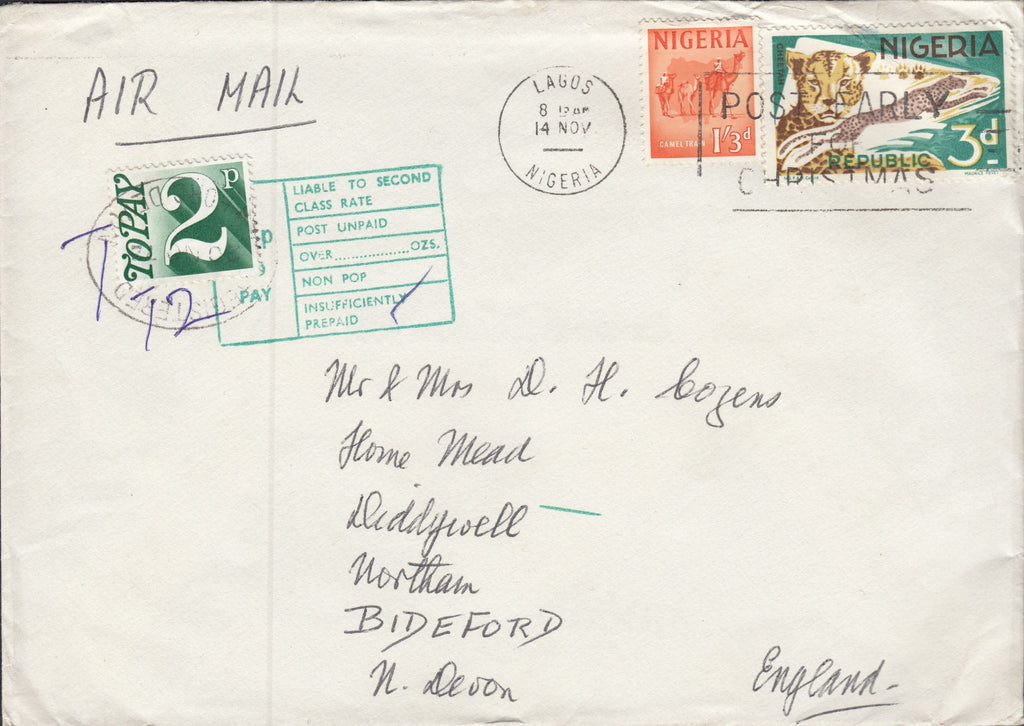 AIR MAIL
LAGOS
14 NOV
NIGERIA
NIGERIA
CAMEL TRAIN 1/3d
CHEETAH
NIGERIA
REPUBLIC 3d
POST EARLY
CHRISTMAS
TO PAY 2p
T 1/2
PAY
LIABLE TO SECOND
CLASS RATE
POST UNPAID
OVER..................OZS.
NON POP
INSUFFICIENTLY
PREPAID
Mr & Mrs D. H. Cozens
Home Mead
Diddywell
Northam
BIDEFORD
N. Devon
England